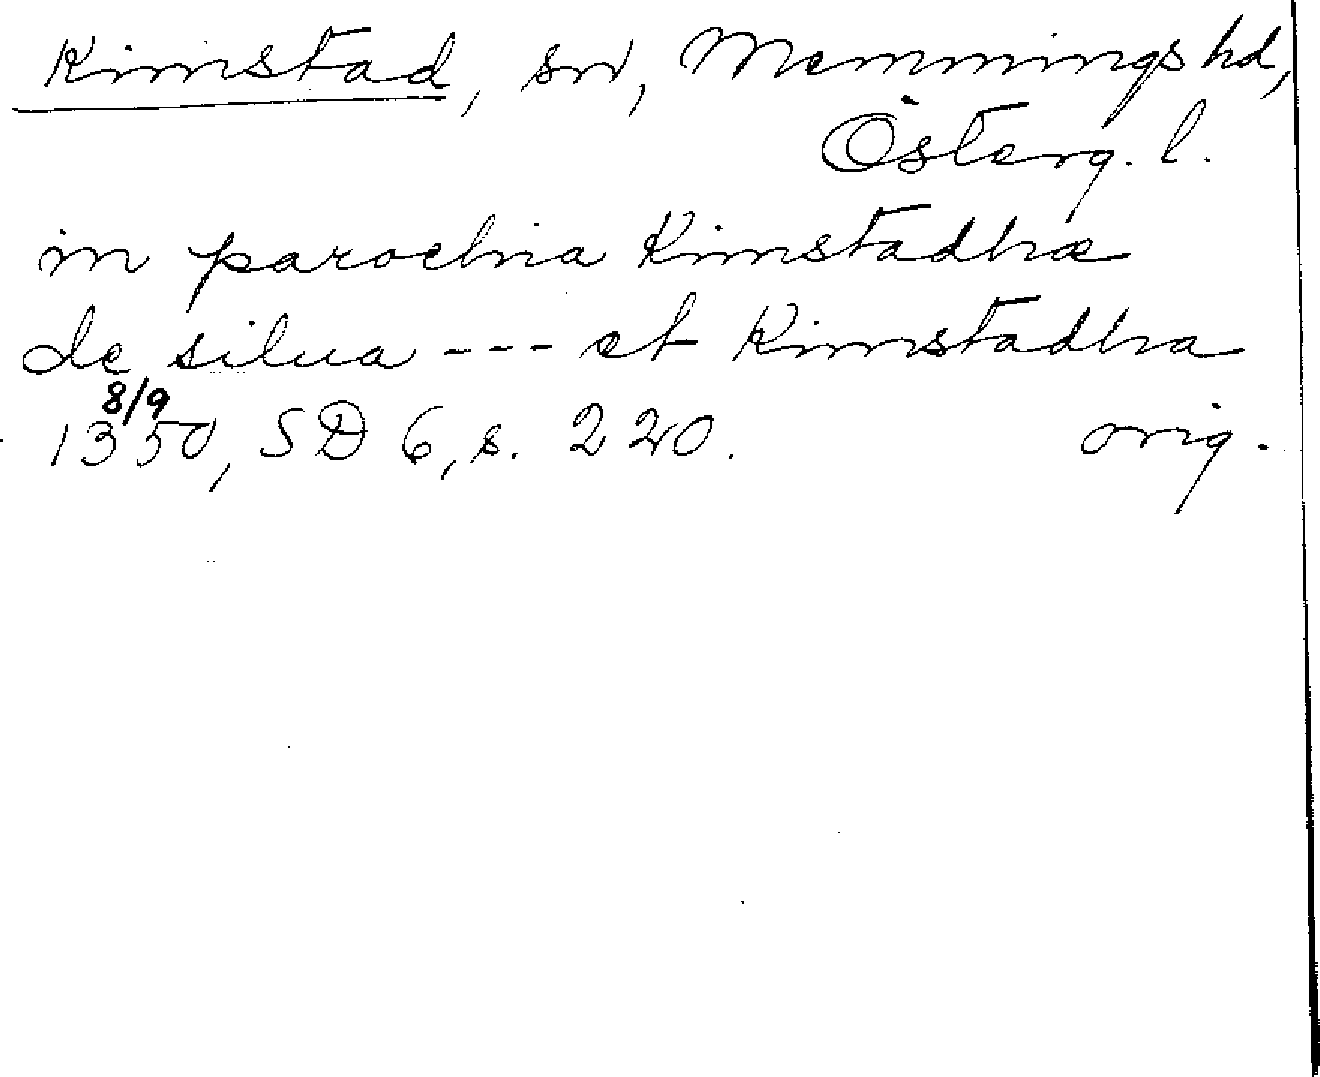 Kimstad, sn, Memmings hd,
Österg. l.
in parochia Kimstadhæ
de silua --- et Kimstadha
8/9
1350, SD 6, s. 220. orig.